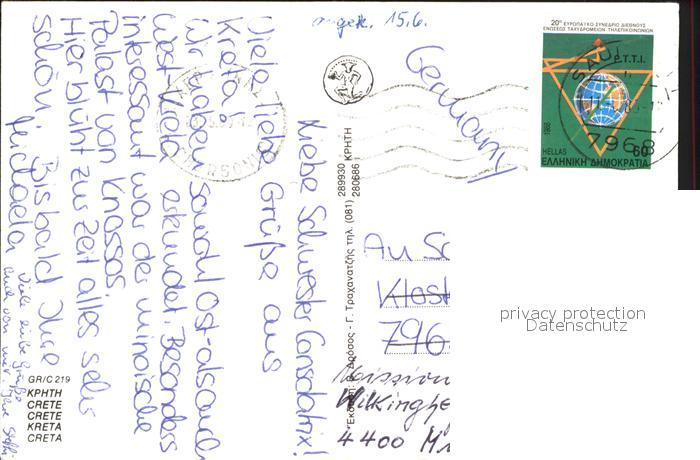 angek. 15.6.
Liebe Schwester Consolatrix!
Viele liebe Grüße aus
Kreta!
Wir haben sowohl Ost- als auch
West-Kreta erkundet. Besonders
interessant war der minoische
Palast von Knossos.
Hier blüht zur Zeit alles sehr
schön
Bis bald Ihre
Michaela
Viele liebe Grüße
auch von mir. Ihre
GR/C 219
ΚΡΗΤΗ
CRETE
CRETE
KRETA
CRETA
289930 ΚΡΗΤΗ
280686
Δρόσος - Γ. Τραχανατζής τηλ. (081)
Germany
An Sc
Klost
796
Mission
Wilkinghe
4400 M
20° ΕΥΡΩΠΑΪΚΟ ΣΥΝΕΔΡΙΟ ΔΙΕΘΝΟΥΣ
ΕΝΩΣΕΩΣ ΤΑΧΥΔΡΟΜΕΙΩΝ ΤΗΛΕΠΙΚΟΙΝΩΝΙΩΝ
P.T.T.I.
1988
HELLAS
60
ΕΛΛΗΝΙΚΗ ΔΗΜΟΚΡΑΤΙΑ
SAUL
7968
privacy protection
Datenschutz